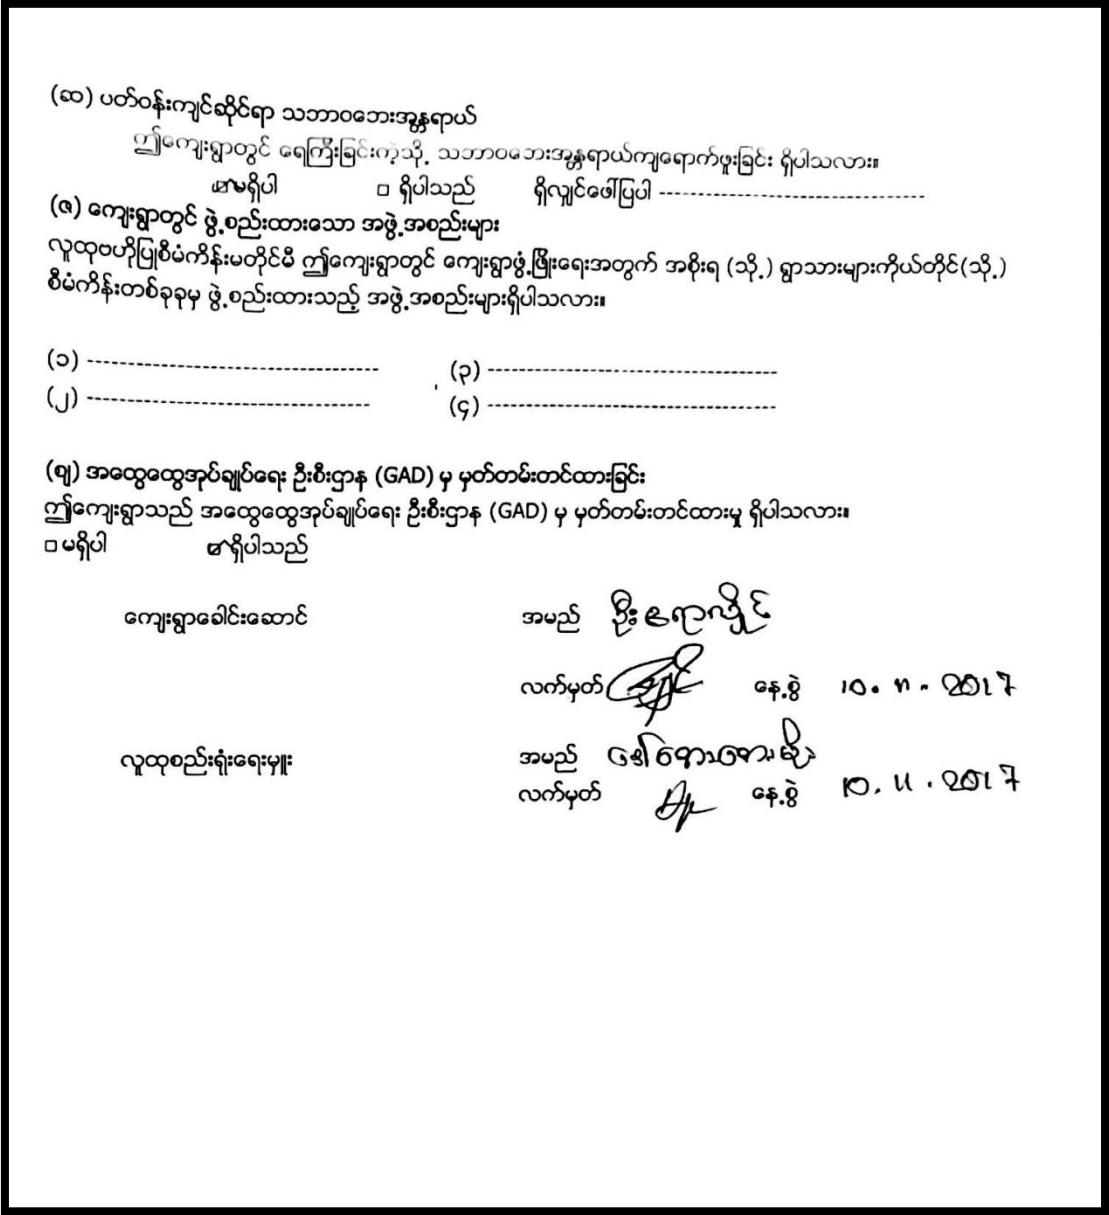 (ဆ) ပတ်ဝန်းကျင်ဆိုင်ရာ သဘာဝဘေးအန္တရာယ်
ဤကျေးရွာတွင် ရေကြီးခြင်းကဲ့သို့ သဘာဝဘေးအန္တရာယ်ကျရောက်ဖူးခြင်း ရှိပါသလား။
☑မရှိပါ □ ရှိပါသည် ရှိလျှင်ဖေါ်ပြပါ --------------------------------
(ဇ) ကျေးရွာတွင် ဖွဲ့စည်းထားသော အဖွဲ့အစည်းများ
လူထုဗဟိုပြုစီမံကိန်းမတိုင်မီ ဤကျေးရွာတွင် ကျေးရွာဖွံ့ဖြိုးရေးအတွက် အစိုးရ (သို့) ရွာသားများကိုယ်တိုင်(သို့)
စီမံကိန်းတစ်ခုခုမှ ဖွဲ့စည်းထားသည့် အဖွဲ့အစည်းများရှိပါသလား။
(၁) ----------------------------------- (၃) -----------------------------------
(၂) ---------------------------------- (၄) -----------------------------------
(ဈ) အထွေထွေအုပ်ချုပ်ရေး ဦးစီးဌာန (GAD) မှ မှတ်တမ်းတင်ထားခြင်း
ဤကျေးရွာသည် အထွေထွေအုပ်ချုပ်ရေး ဦးစီးဌာန (GAD) မှ မှတ်တမ်းတင်ထားမှု ရှိပါသလား။
□ မရှိပါ ☑ရှိပါသည်
ကျေးရွာခေါင်းဆောင် အမည် ဦး
လက်မှတ် နေ့စွဲ 10. 11. 2017
လူထုစည်းရုံးရေးမှူး အမည် ဒေါ်
လက်မှတ် နေ့စွဲ 10. 11. 2017